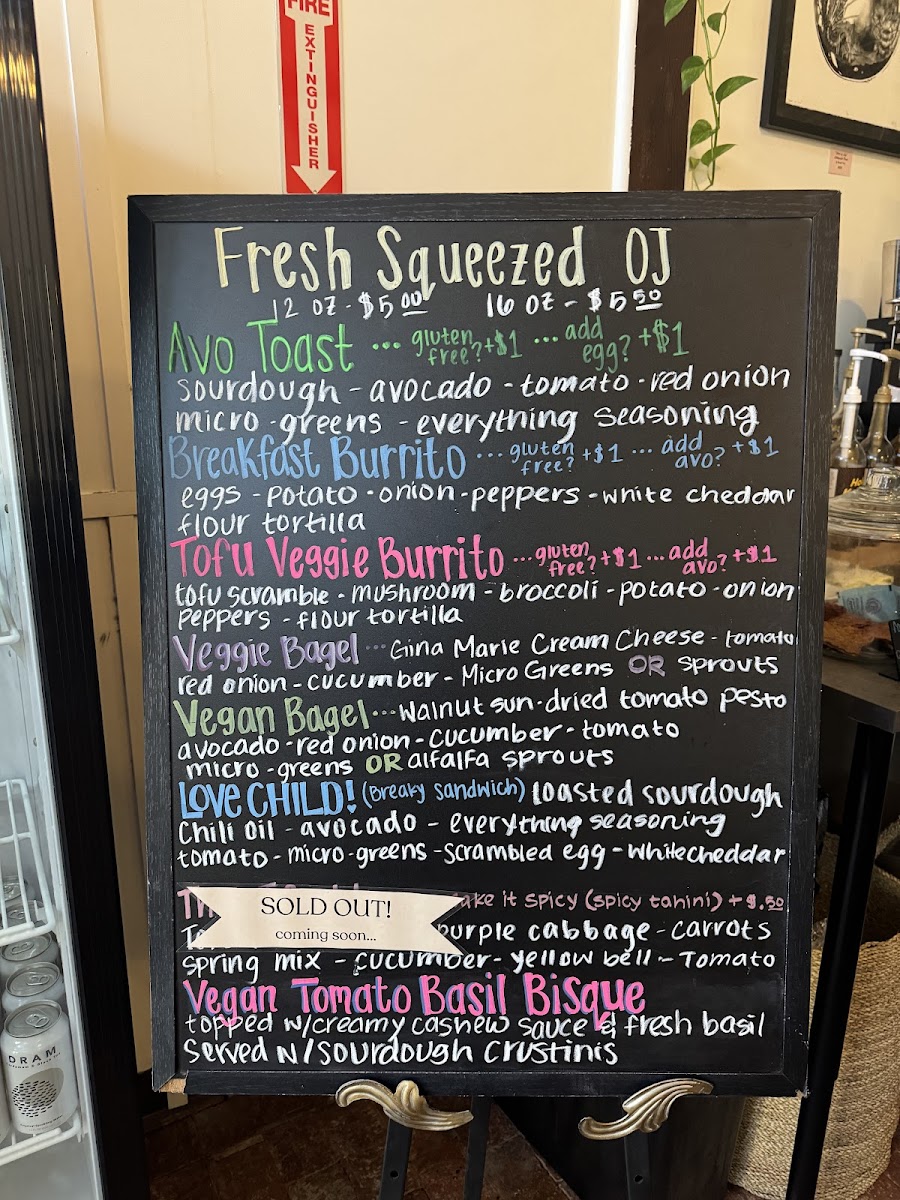 FIRE
EXTINGUISHER
Fresh Squeezed OJ
12 oz - $5.00 16 oz - $5.50
Avo Toast ... gluten free? +$1 ... add egg? +$1
sourdough - avocado - tomato - red onion
micro-greens - everything seasoning
Breakfast Burrito ... gluten free? +$1 ... add avo? +$1
eggs - potato - onion - peppers - white cheddar
flour tortilla
Tofu Veggie Burrito ... gluten free? +$1 ... add avo? +$1
tofu scramble - mushroom - broccoli - potato - onion
peppers - flour tortilla
Veggie Bagel ... Gina Marie Cream Cheese - tomato
red onion - cucumber - Micro Greens OR sprouts
Vegan Bagel ... walnut sun-dried tomato pesto
avocado - red onion - cucumber - tomato
micro-greens OR alfalfa sprouts
LOVE CHILD! (Breaky Sandwich) toasted sourdough
Chili oil - avocado - everything seasoning
tomato - micro-greens - scrambled egg - white cheddar
SOLD OUT!
coming soon...
it spicy (spicy tahini) + $.50
purple cabbage - carrots
spring mix - cucumber - yellow bell - Tomato
Vegan Tomato Basil Bisque
topped w/creamy cashew sauce & fresh basil
served w/sourdough crustinis
DRAM